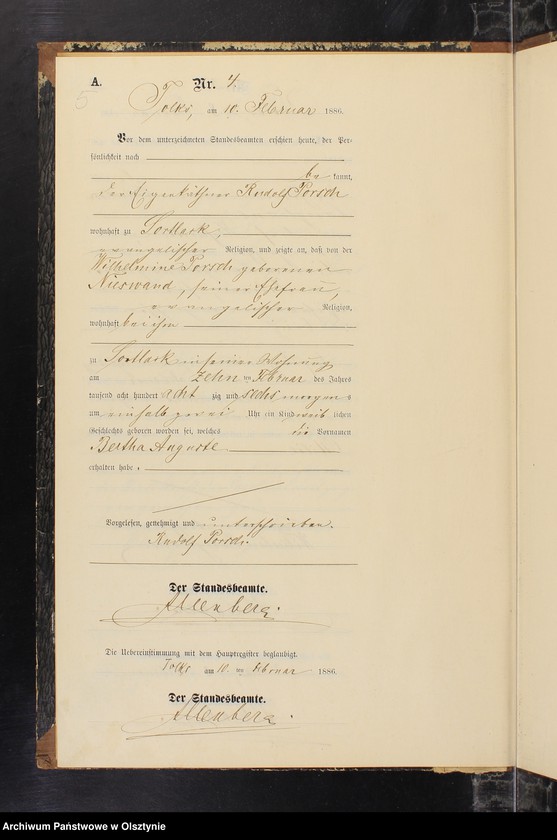 A.
Nr. 4.
5
Tolks, am 10. Februar 1886.
Vor dem unterzeichneten Standesbeamten erschien heute, der Per-
sönlichkeit nach
be kannt,
der Eigenkäthner Rudolf Porsch
wohnhaft zu Sortlack,
evangelischer Religion, und zeigte an, daß von der
Wilhelmine Porsch geborenen
Nieswand, seiner Ehefrau,
evangelischer Religion,
wohnhaft bei ihm
zu Sortlack in seiner Wohnung
am zehn ten Februar des Jahres
tausend acht hundert acht zig und sechs morgens
um einhalb zwei Uhr ein Kind weib lichen
Geschlechts geboren worden sei, welches die Vornamen
Bertha Auguste
erhalten habe.
Vorgelesen, genehmigt und unterschrieben.
Rudolf Porsch.
Der Standesbeamte.
Allenberg.
Die Uebereinstimmung mit dem Hauptregister beglaubigt.
Tolks am 10. ten Februar 1886.
Der Standesbeamte.
Allenberg.
Archiwum Państwowe w Olsztynie